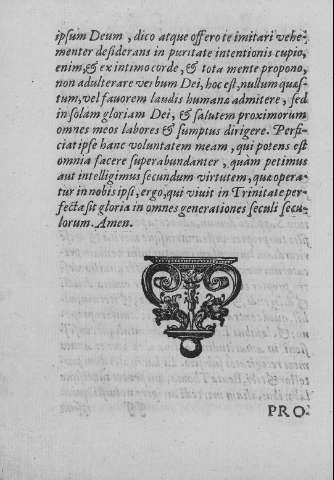 ipsum Deum, dico atque offero te imitari vehe-
menter desiderans in puritate intentionis cupio,
enim, & ex intimo corde, & tota mente propono,
non adulterare verbum Dei, hoc est, nullum quæs-
tum, vel fauorem laudis humanæ admitere, sed
in solam gloriam Dei, & salutem proximorum
omnes meos labores & sumptus dirigere. Perfi-
ciat ipse hanc voluntatem meam, qui potens est
omnia facere superabundanter, quàm petimus
aut intelligimus secundum virtutem, quæ opera-
tur in nobis ipsi, ergo, qui viuit in Trinitate per-
fectæ sit gloria in omnes generationes seculi secu-
lorum. Amen.
PRO-